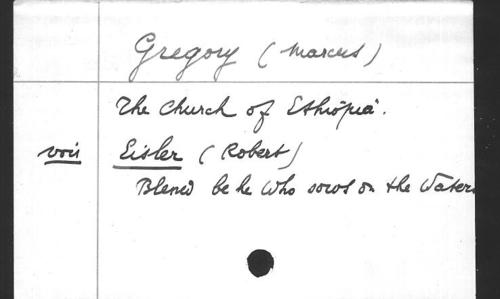 Gregory (Marcus)
The Church of Ethiopia.
voir Eisler (Robert)
Blessed be he who sows on the Waters